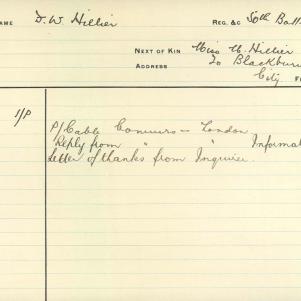 NAME D. W. Hillier REG. &C 50th Batt
NEXT OF KIN Miss M. Hillier
ADDRESS To Blackburn
City
1/P
P/Cable Conners - London
Reply from " " Informat
Letter of thanks from Inquirer.